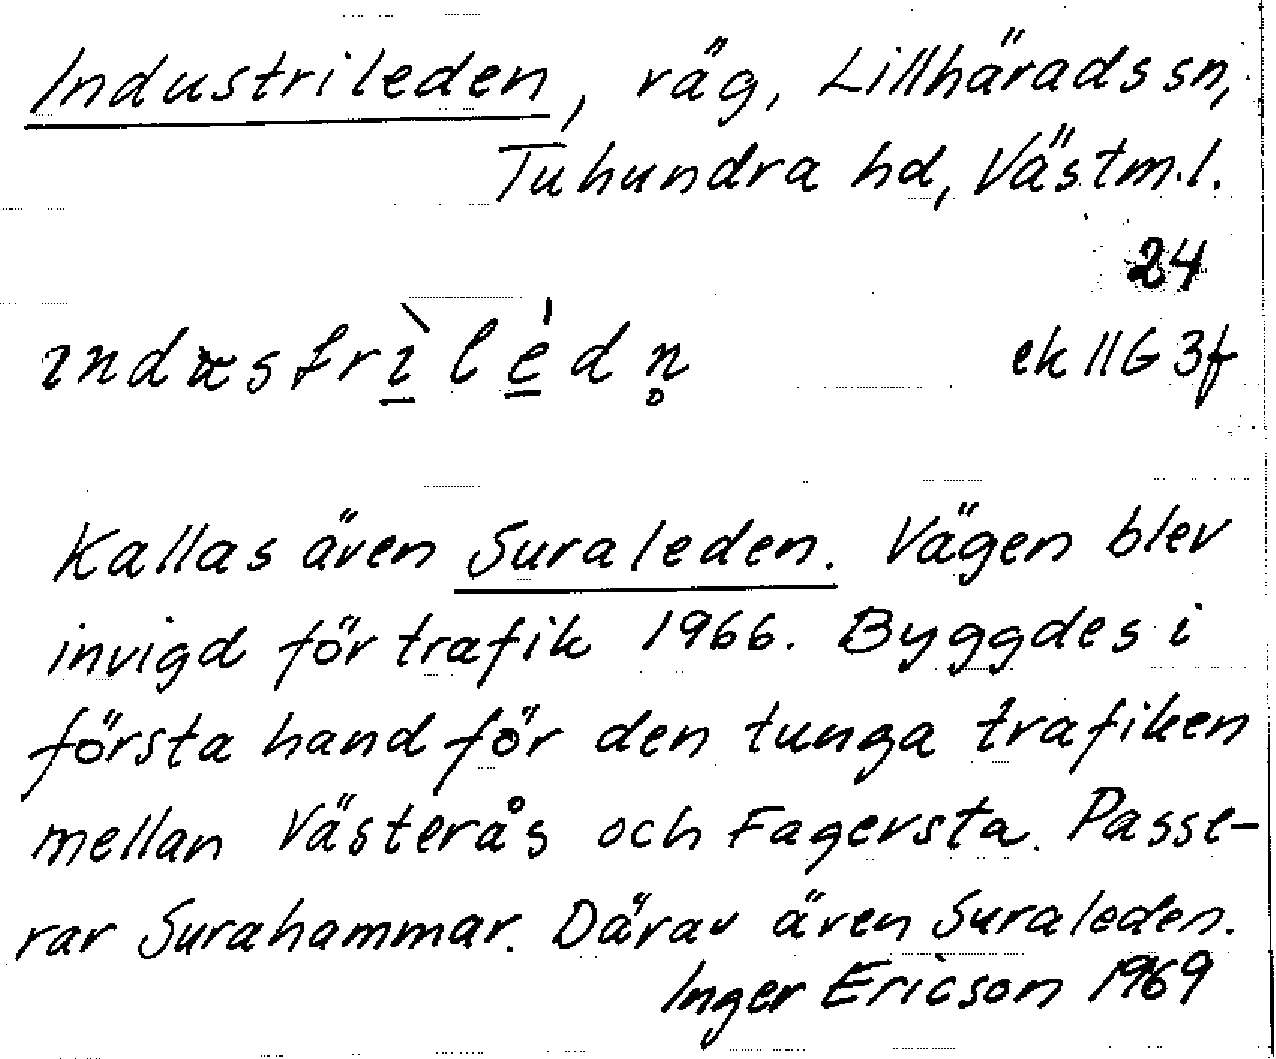 Industrileden, väg, Lillhärads sn,
Tuhundra hd, Västm.l.
24
ek 11G 3f
Kallas även Suraleden. Vägen blev
invigd för trafik 1966. Byggdes i
första hand för den tunga trafiken
mellan Västerås och Fagersta. Passe-
rar Surahammar. Därav även Suraleden.
Inger Ericson 1969